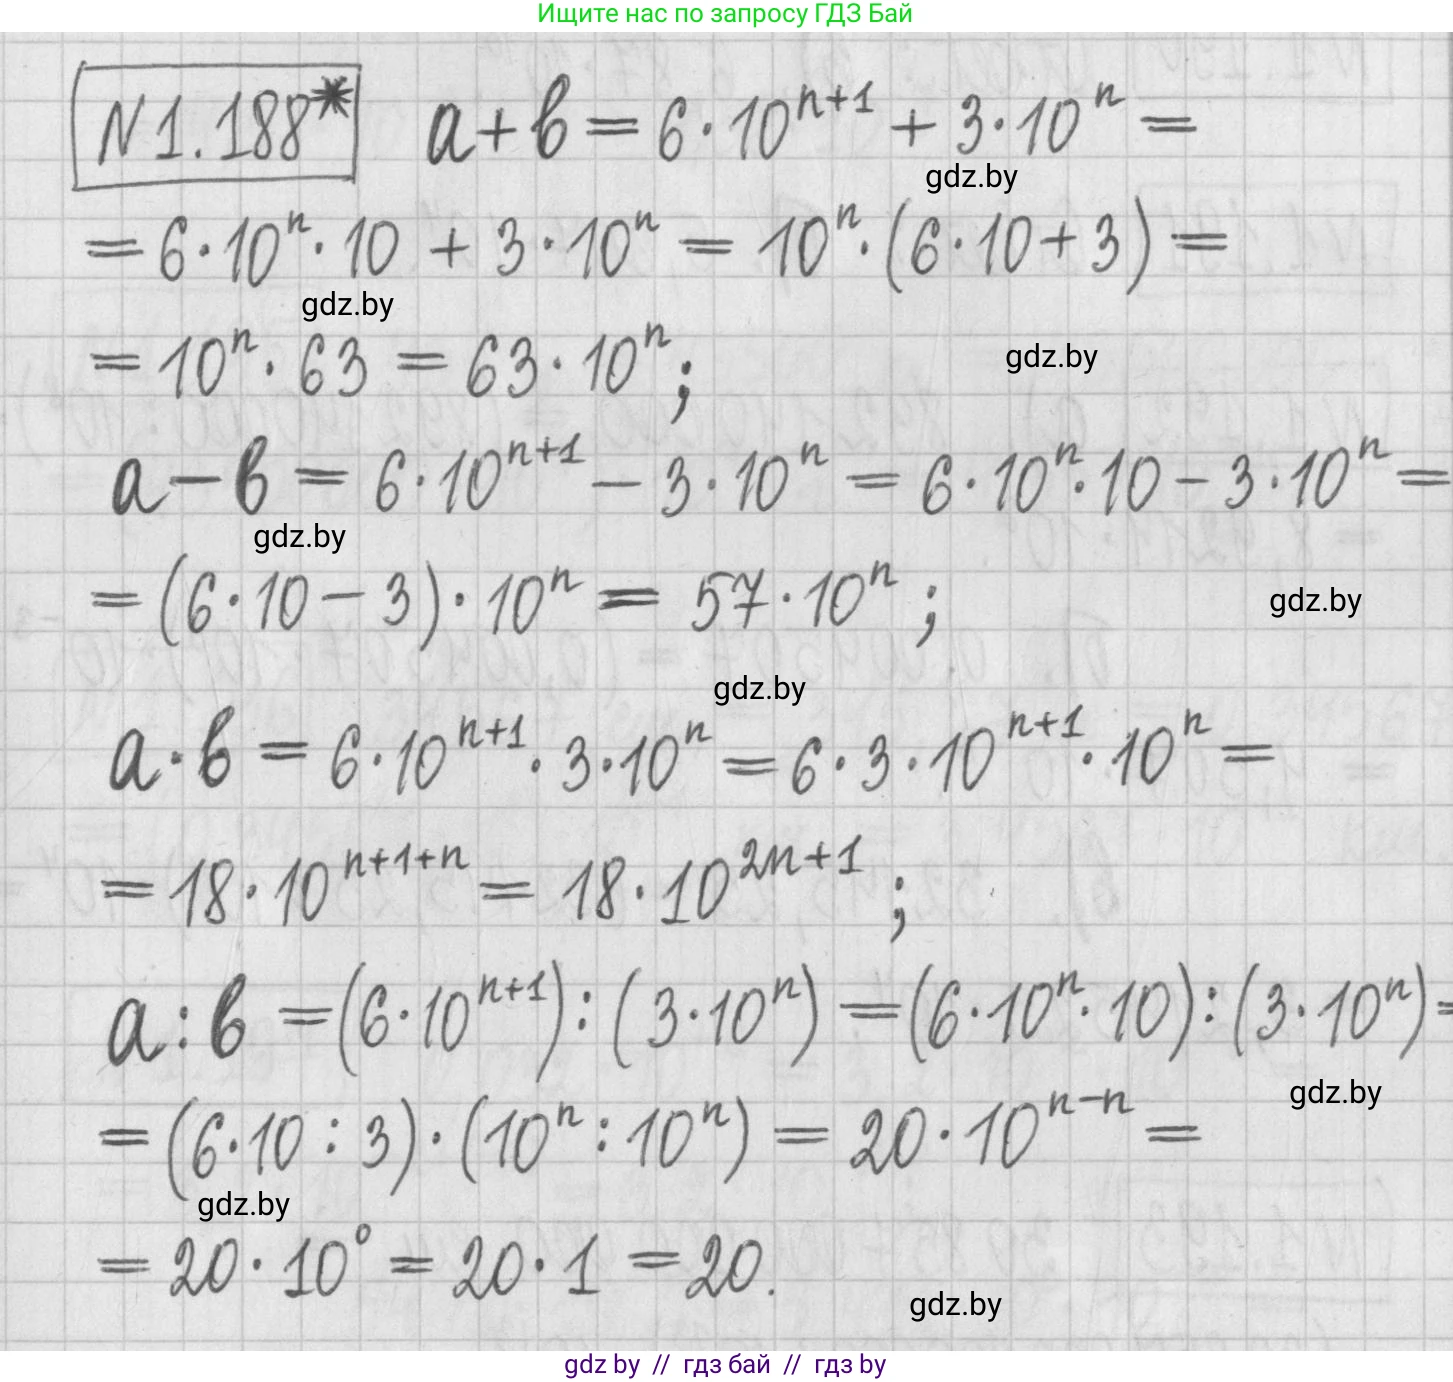 Ищите нас по запросу ГДЗ Бай
N1.188* a+b = 6·10ⁿ⁺¹ + 3·10ⁿ =
gdz.by
= 6·10ⁿ·10 + 3·10ⁿ = 10ⁿ·(6·10+3) =
gdz.by
= 10ⁿ·63 = 63·10ⁿ;
gdz.by
a-b = 6·10ⁿ⁺¹ - 3·10ⁿ = 6·10ⁿ·10 - 3·10ⁿ =
gdz.by
= (6·10-3)·10ⁿ = 57·10ⁿ;
gdz.by
gdz.by
a·b = 6·10ⁿ⁺¹·3·10ⁿ = 6·3·10ⁿ⁺¹·10ⁿ =
= 18·10ⁿ⁺¹⁺ⁿ = 18·10²ⁿ⁺¹;
a:b = (6·10ⁿ⁺¹):(3·10ⁿ) = (6·10ⁿ·10):(3·10ⁿ) =
gdz.by
= (6·10:3)·(10ⁿ:10ⁿ) = 20·10ⁿ⁻ⁿ =
gdz.by
= 20·10⁰ = 20·1 = 20.
gdz.by
gdz by // гдз бай // гдз by